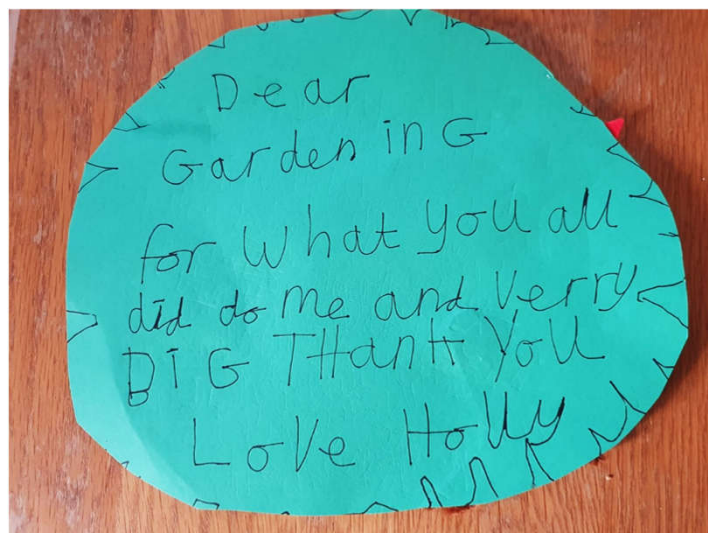 Dear
Garden in G
for what you all
did do me and verry
BIG THanH YoU
Love Holly